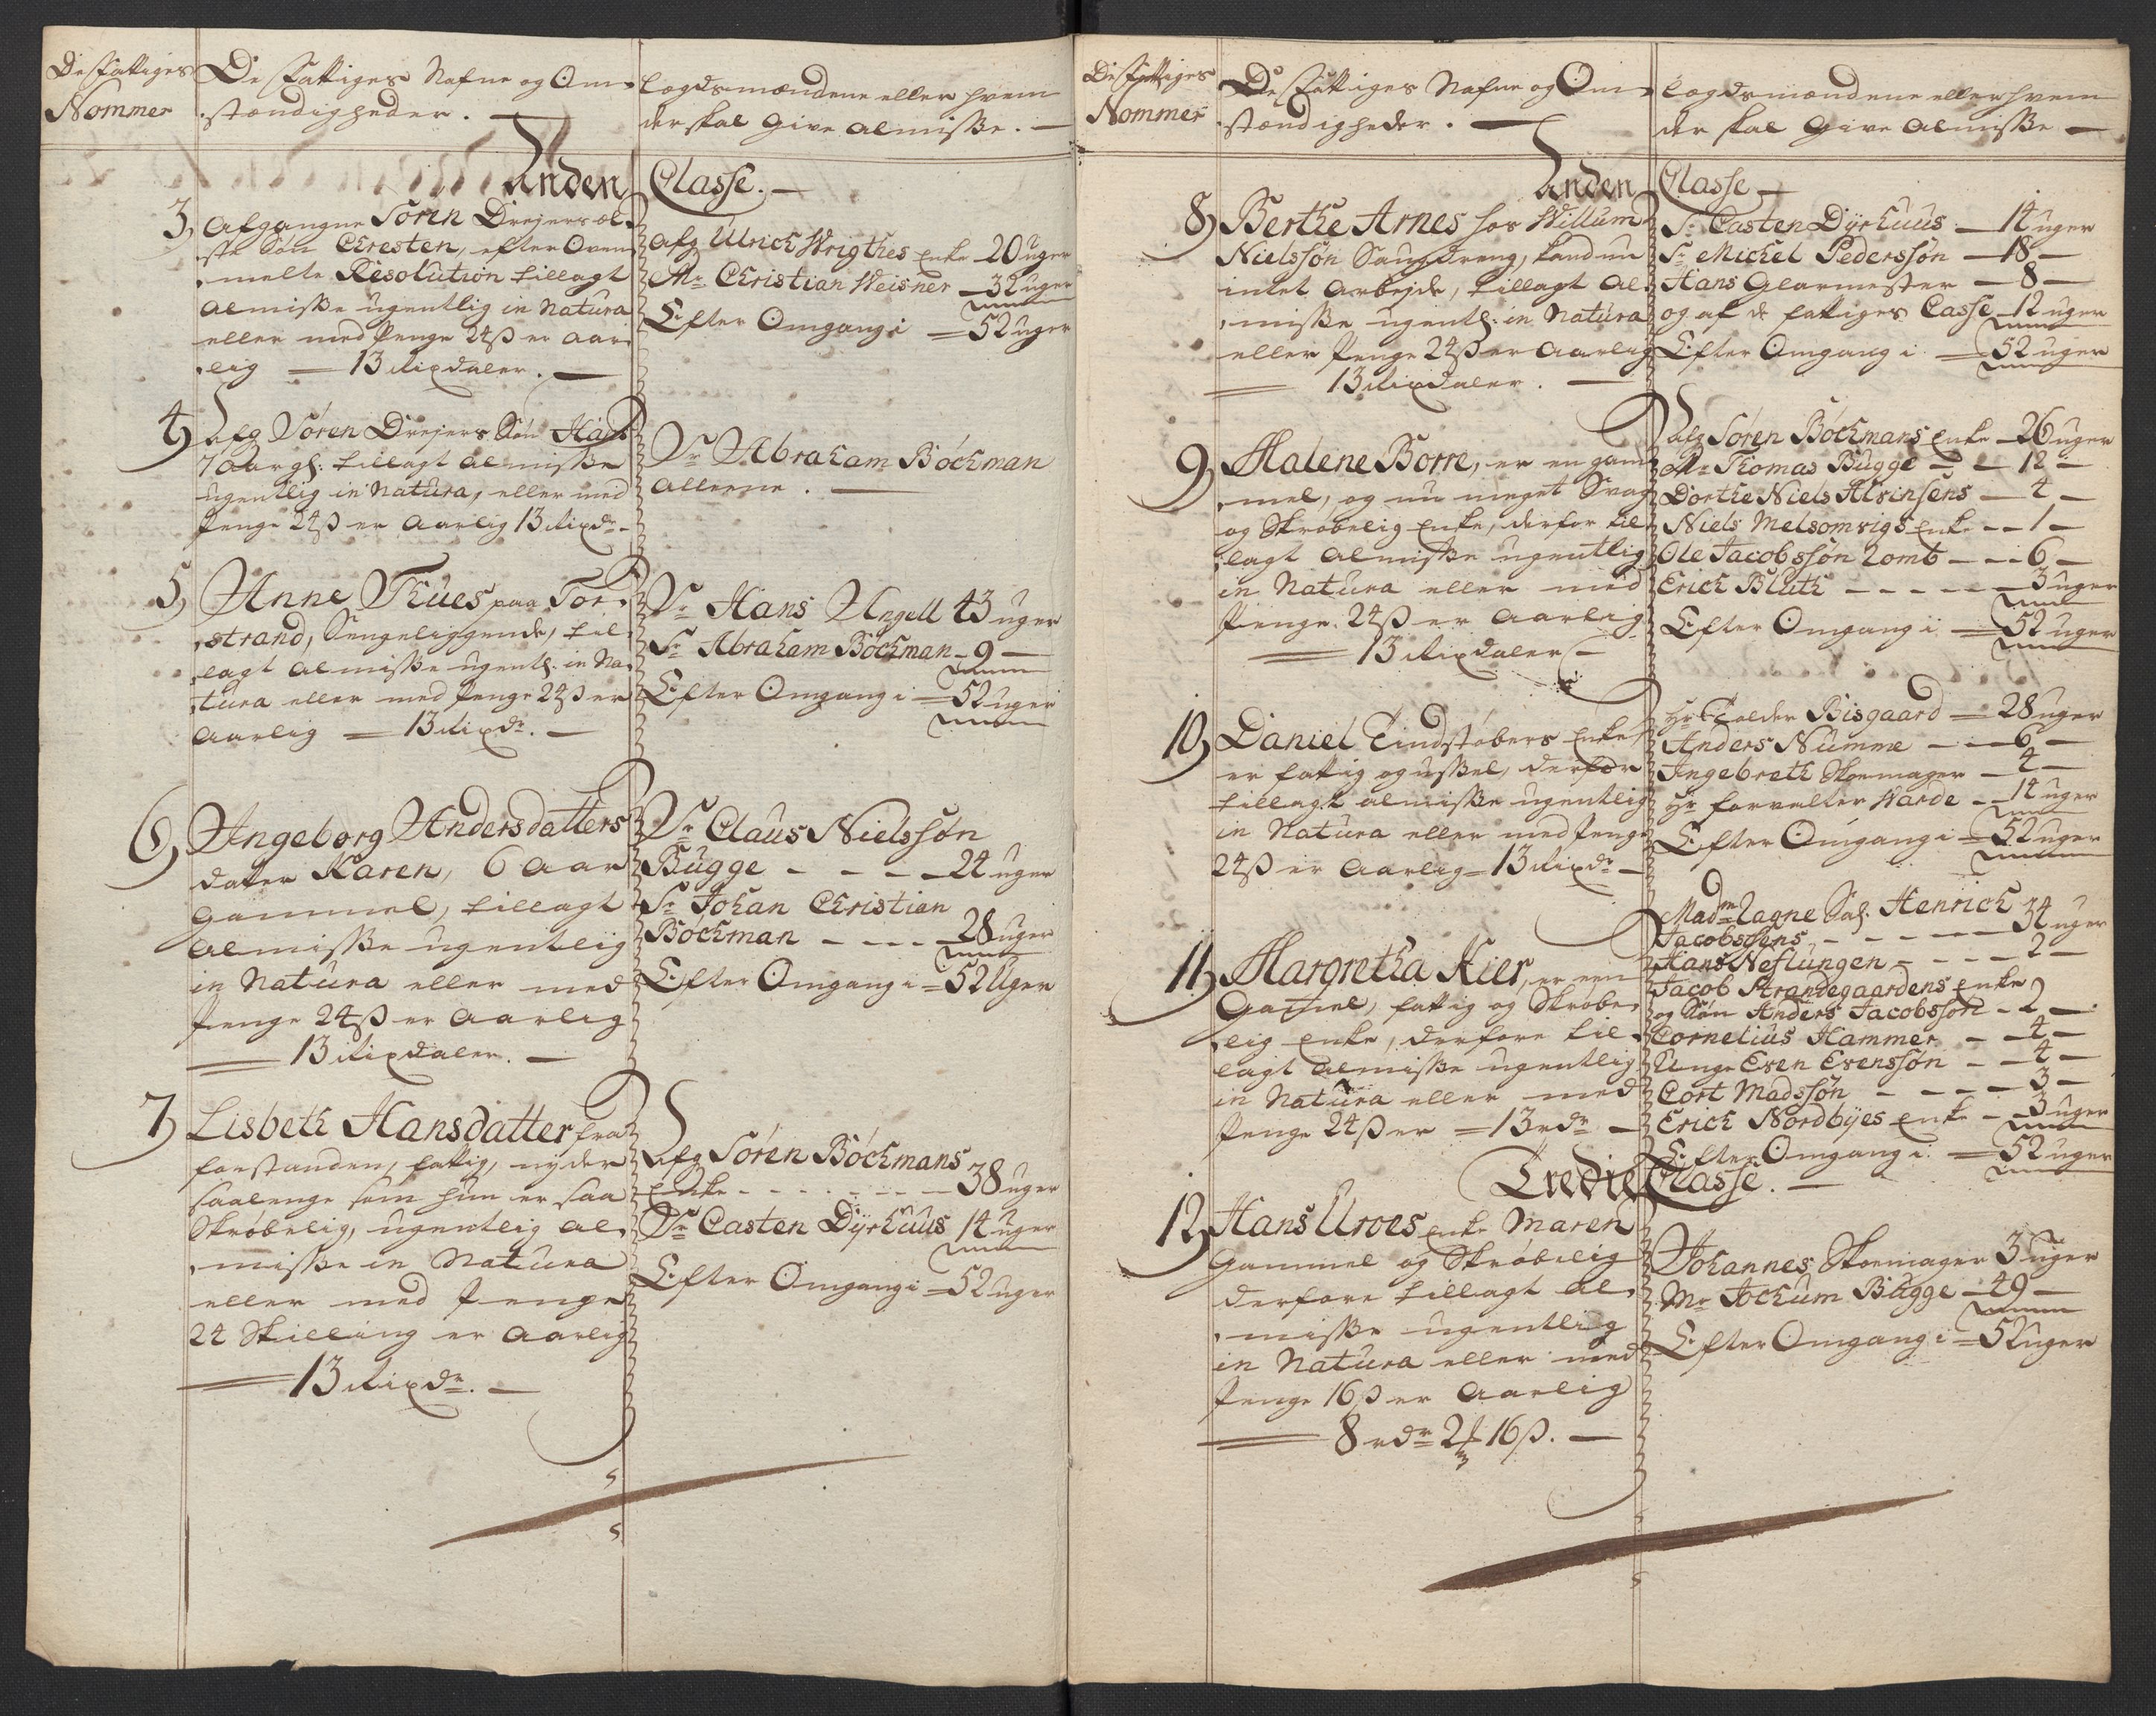 De Fattiges
Nommer
De Fattiges Nafne og Om-
stændigheder. —
Logdsmændene eller hvem
der skal Give Almisse. —
Anden Classe. —
3, Afgangne Sören Drejers æl-
ste Søn Chresten, efter Oven-
melte Resolution tillagt
Almisse ugentlig in Natura
eller med Penge 24 ß er aar-
lig — 13 Rixdaler. —
Afg Ulrich Wrigthes Enke 20 uger
Mr Christian Weisner — 32 uger
Efter Omgang i = 52 uger
4, Afg Sören Drejers Søn Hans
7 Aar gl: tillagt Almisse
ugentlig in Natura, eller med
Penge 24 ß er Aarlig 13 Rixdr. —
Sr Abraham Böchman
alleene. —
5, Anne Thües paa Tor-
strand, Sengeliggende, til-
lagt Almisse ugentl: in Na-
tura eller med Penge 24 ß er
Aarlig = 13 Rixdr. —
Sr Hans Ungell 43 uger
Sr Abraham Böchman - 9 —
Efter Omgang i = 52 uger
6, Ingeborg Andersdatters
datter Karen, 6 Aar
Gammel, tillagt
Almisse ugentlig
in Natura eller med
Penge 24 ß er Aarlig
= 13 Rixdaler. —
Sr Claus Nielssön
Bugge - - - - 24 uger
Sr Johan Christian
Böchman - - - - 28 uger
Efter Omgang i = 52 Uger
7, Lisbeth Hansdatter fra
forstanden, fattig, nyder
saalenge som hun er saa
Skrøbelig, ugentlig Al-
misse in Natura
eller med Penge
24 Skilling er Aarlig
= 13 Rixdr. —
Afg Sören Böchmans
Enke - - - - - - 38 uger
Sr Casten Dÿrhuus 14 uger
Efter Omgang i = 52 uger
De Fattiges
Nommer
De Fattiges Nafne og Om-
stændigheder. —
Logdsmændene eller hvem
der skal Give Almisse —
Anden Classe —
8, Berthe Arnes hos Willum
Nielssön Saugdreng, kand nu
intet Arbejde, tillagt Al-
misse ugentl: in Natura
eller Penge 24 ß er Aarlig
= 13 Rixdaler. —
Sr Casten Dÿrhuus — 14 uger
Sr Michel Pederssön — 18 —
Hans Glarmester — 8 —
og af de fattiges Casse 12 uger
Efter Omgang i = 52 uger
9, Malene Borre, er en gam-
mel, og nu meget Svag
og Skrøbelig Enke, derfor til-
lagt Almisse ugentlig
in Natura eller med
Penge 24 ß er Aarlig
= 13 Rixdaler —
Afg Sören Böchmans Enke — 26 uger
Mr Thomas Bugge — — 12 —
Dorthe Niels Alvinsens — 4 —
Niels Melsomvigs Enke - - 1 —
Ole Jacobssön Lomb - - - 6 —
Erich Bluth - - - - - 3 uger
Efter Omgang i = 52 uger
10, Daniel Tindstøbers Enke
er fattig og ussel, derfor
tillagt Almisse ugentlig
in Natura eller med Penge
24 ß er Aarlig = 13 Rixdr —
Hr Tolder Bisgaard — 28 uger
Anders Numme - - - 6 —
Ingebreth Skoemager — 4 —
Hr forvalter Warde - - 14 uger
Efter Omgang i = 52 uger
11, Margretha Kier, er een
Gam̄el, fattig og Skrøbe-
lig Enke, derfore til-
lagt Almisse ugentlig
in Natura eller med
Penge 24 ß er = 13 rdr —
Madme Lagne Sal: Henrich
Jacobssens, - - - - - 34 uger
Hans Neslungen - - - - 2 —
Jacob Strandegaardens Enke
og Søn Anders Jacobssön - 2 —
Cornelius Hammer - - 4 —
Unge Even Evenssön - - 4 —
Cort Madssön - - - - 3 —
Erich Nordbÿes Enke - 3 uger
Efter Omgang i = 52 uger
Tredie Classe. —
12, Hans Uroes Enke Maren
Gammel og Skrøbelig
derfore tillagt Al-
misse ugentlig
in Natura eller med
Penge 16 ß er Aarlig
= 8 rdr 2 16 ß. —
Johannes Skoemager 3 uger
Mr Jochum Bugge — 49 —
Efter Omgang i = 52 uger